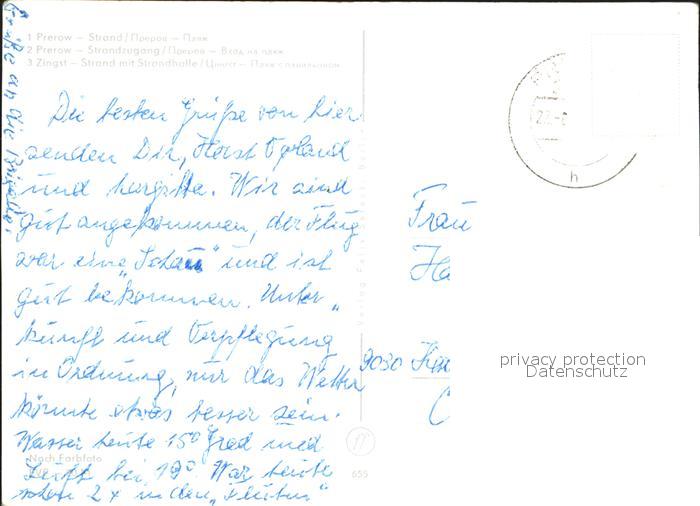 1 Prerow – Strand / Преров – Пляж
2 Prerow – Strandzugang / Преров – Вход на пляж
3 Zingst – Strand mit Strandhalle / Цингст – Пляж с павильоном
Grüße an die Brigade.
Die besten Grüße von hier
senden Dir, Horst
und Margitta. Wir sind
gut angekommen, der Flug
war eine „Schau" und ist
gut bekommen. Unter„
kunft und Verpflegung
in Ordnung, nur das Wetter
könnte etwas besser sein.
Wasser heute 15° Grad und
Luft bei 19°. War heute
schon 2x in den „Fluten"
Frau
Ha
9030
privacy protection
Datenschutz
h
Nach Farbfoto
655